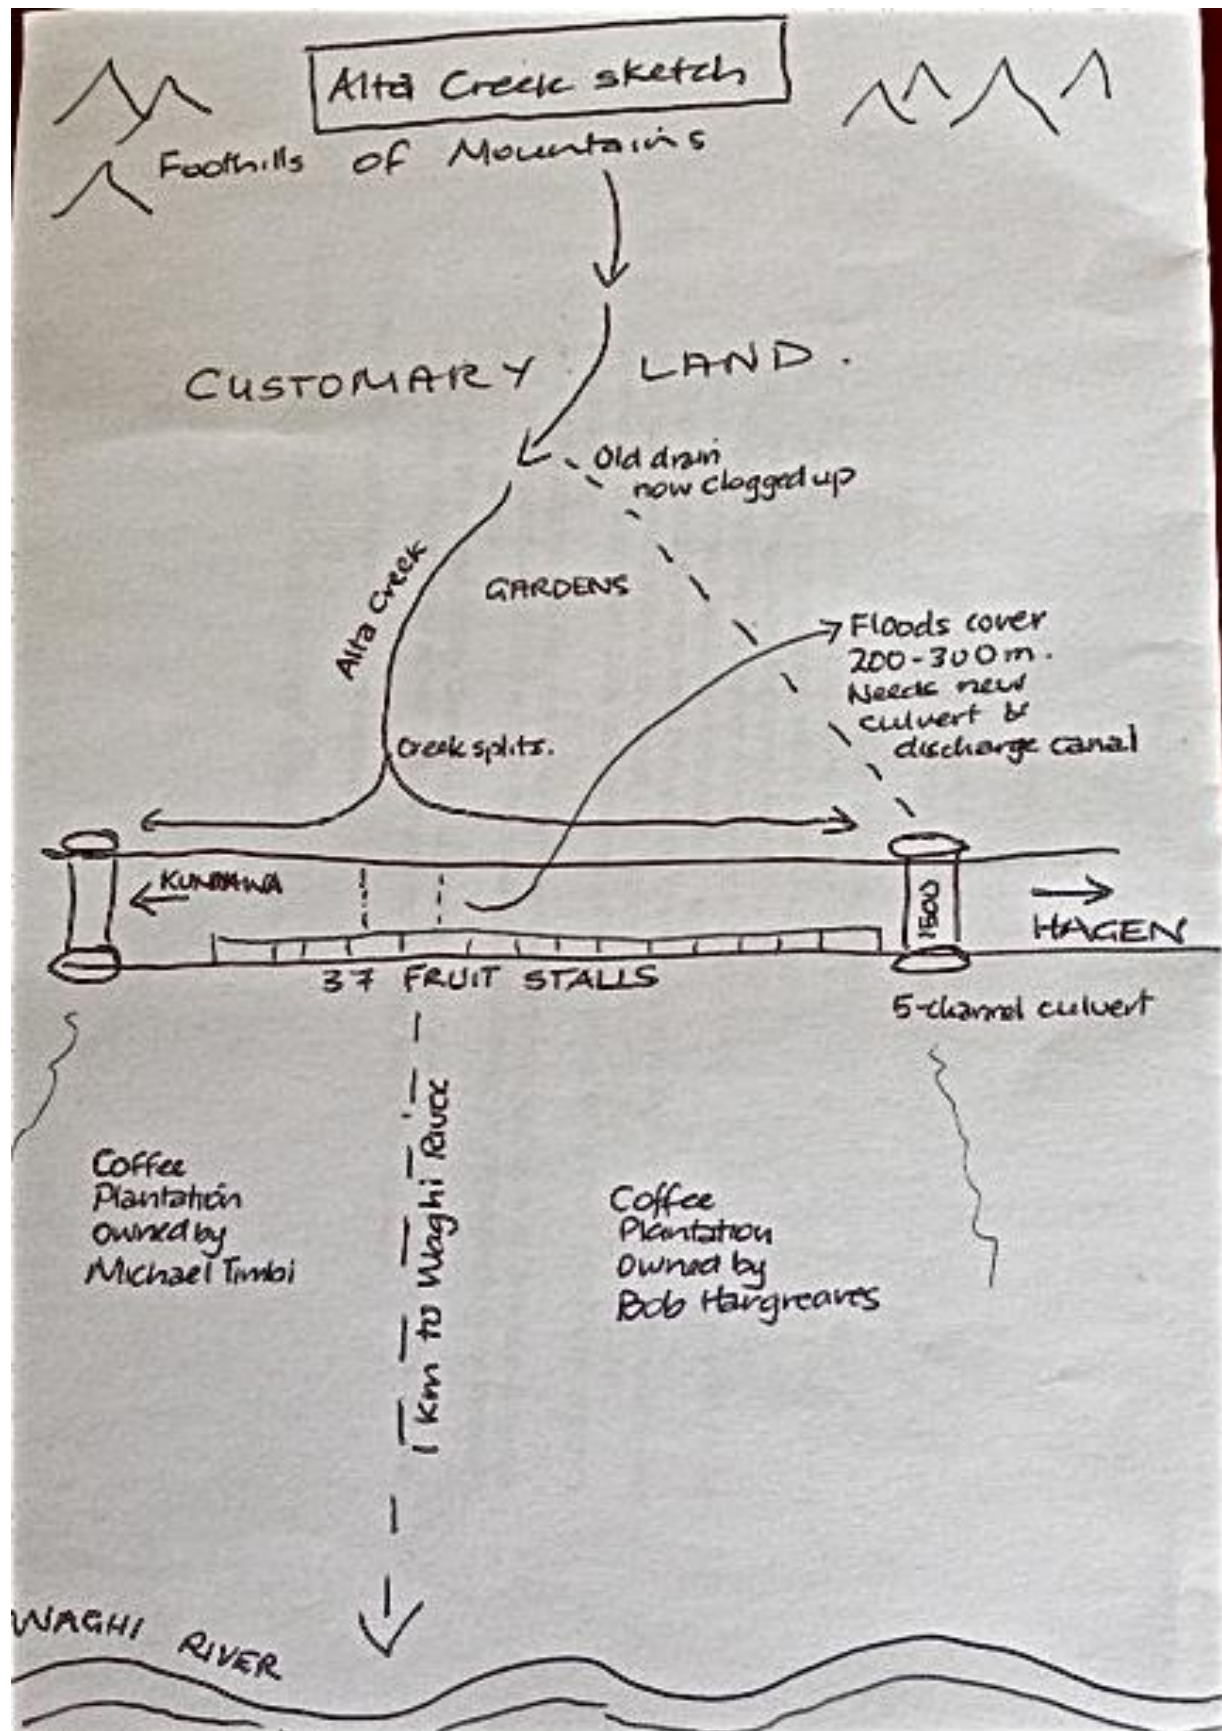 Alta Creek sketch
Foothills of Mountains
CUSTOMARY LAND.
Old drain
now clogged up
Alta Creek
GARDENS
Floods cover
200-300m.
Needs new
culvert &
discharge canal
Creek splits.
KUNDAWA
1500
HAGEN
37 FRUIT STALLS
5-channel culvert
1 km to Waghi River
Coffee
Plantation
owned by
Michael Timbi
Coffee
Plantation
owned by
Bob Hargreaves
WAGHI RIVER